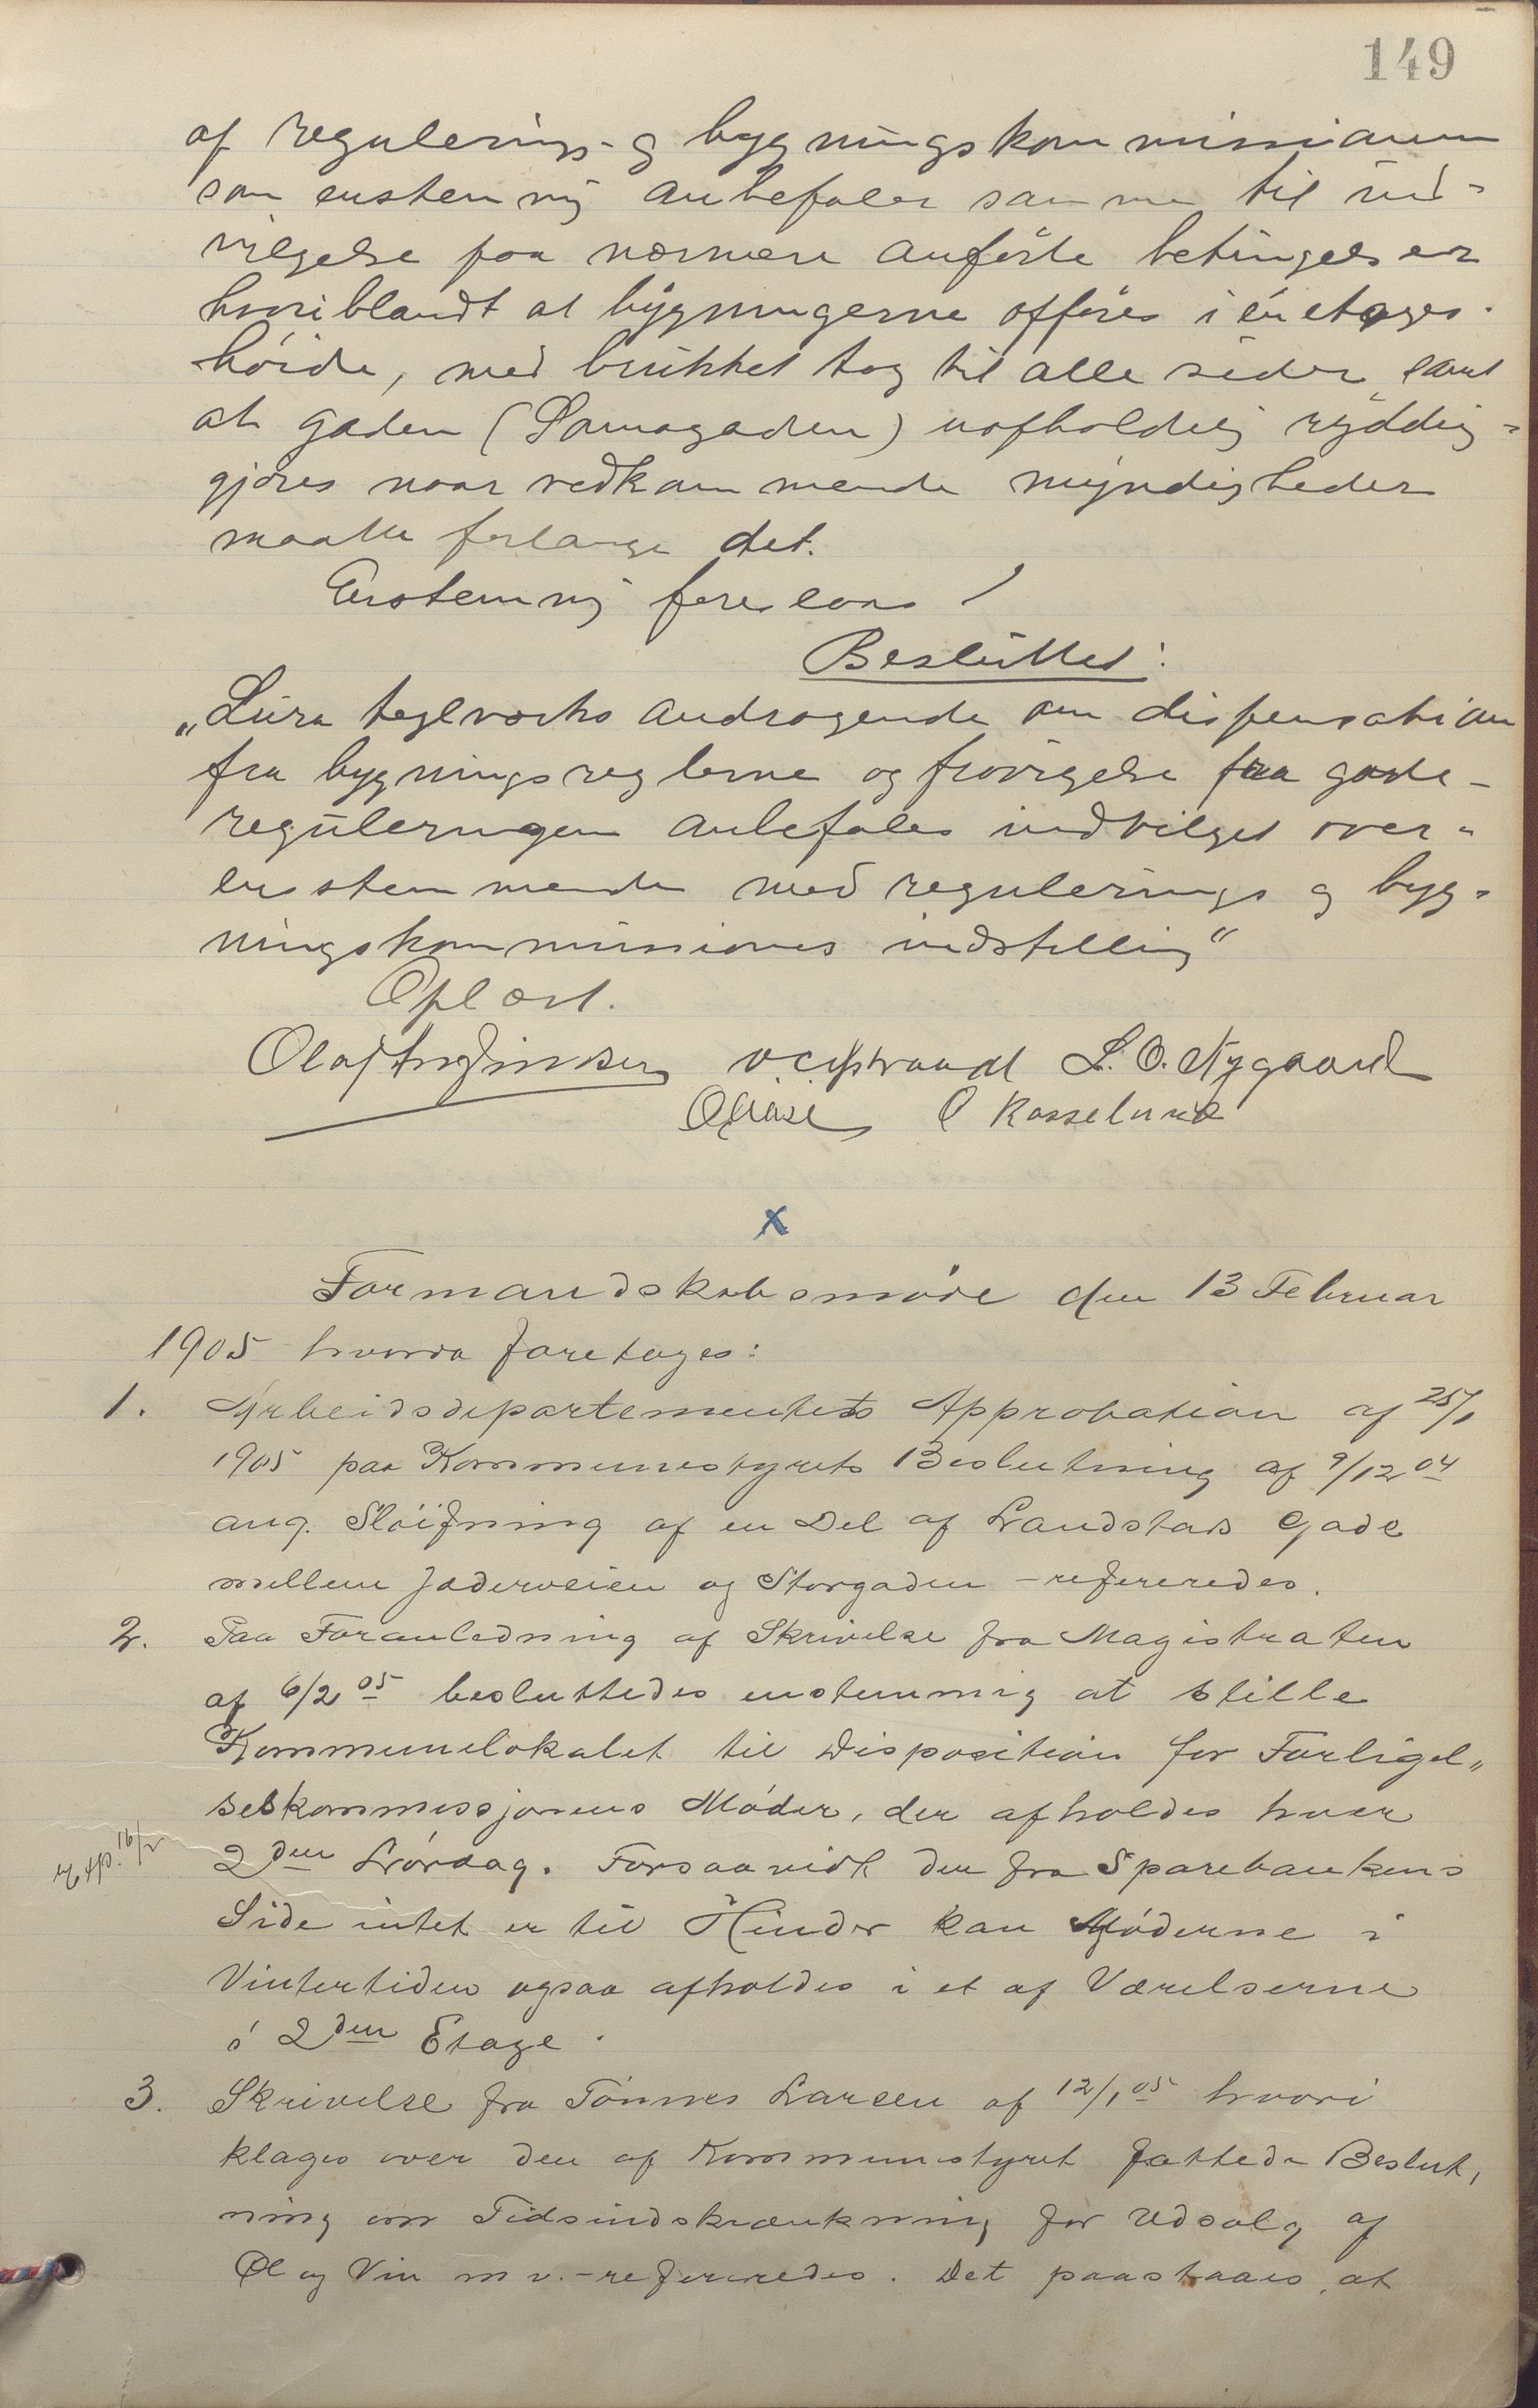 149
af regulerings- og bygningskommissionen
som enstemmig anbefaler samme til ind-
vilgelse paa nærmere anførte betingelser
hvoriblandt at bygningerne opføres i én etages
høide, med brukket tag til alle sider, samt
at gaden (Parnagaden) uopholdelig ryddig-
gjøres naar vedkommende myndigheder
maatte forlange det.
Enstemmig
Besluttet:
„Lura teglværks andragende om dispensation
fra bygningsreglerne og fravigelse fra gade-
reguleringen anbefales indvilget over-
ensstemmende med regulerings og byg-
ningskommissionens indstilling"
Oplæst.
L. O. Nygaard
O Rosselund
x
Formandskabsmøde den 13 Februar
1905 hvorda foretoges:
1. Arbeidsdepartementets Approbation af 25/1
1905 paa Kommunestyrets Beslutning af 9/12 04
ang. Sløifning af en Del af Landstads Gade
mellem Jæderveien og Storgaden - refereredes.
2. Paa Foranledning af Skrivelse fra Magistraten
af 6/2 05 besluttedes enstemmig at stille
Kommunelokalet til Disposition for Forligel„
seskommissjonens Møder, der afholdes hver
2den Lørdag. Forsaavidt der fra Sparebankens
Exp. 16/2
Side intet er til Hinder kan Møderne i
Vintertiden ogsaa afholdes i et af Værelserne
i 2den Etage.
3. Skrivelse fra Tønnes Larsen af 12/1 05 hvori
klages over den af Kommunestyret fattede Beslut,
ning om Tidsindskrænkning for Udsalg af
Øl og Vin m v. - refereredes. Det paastaaes, at